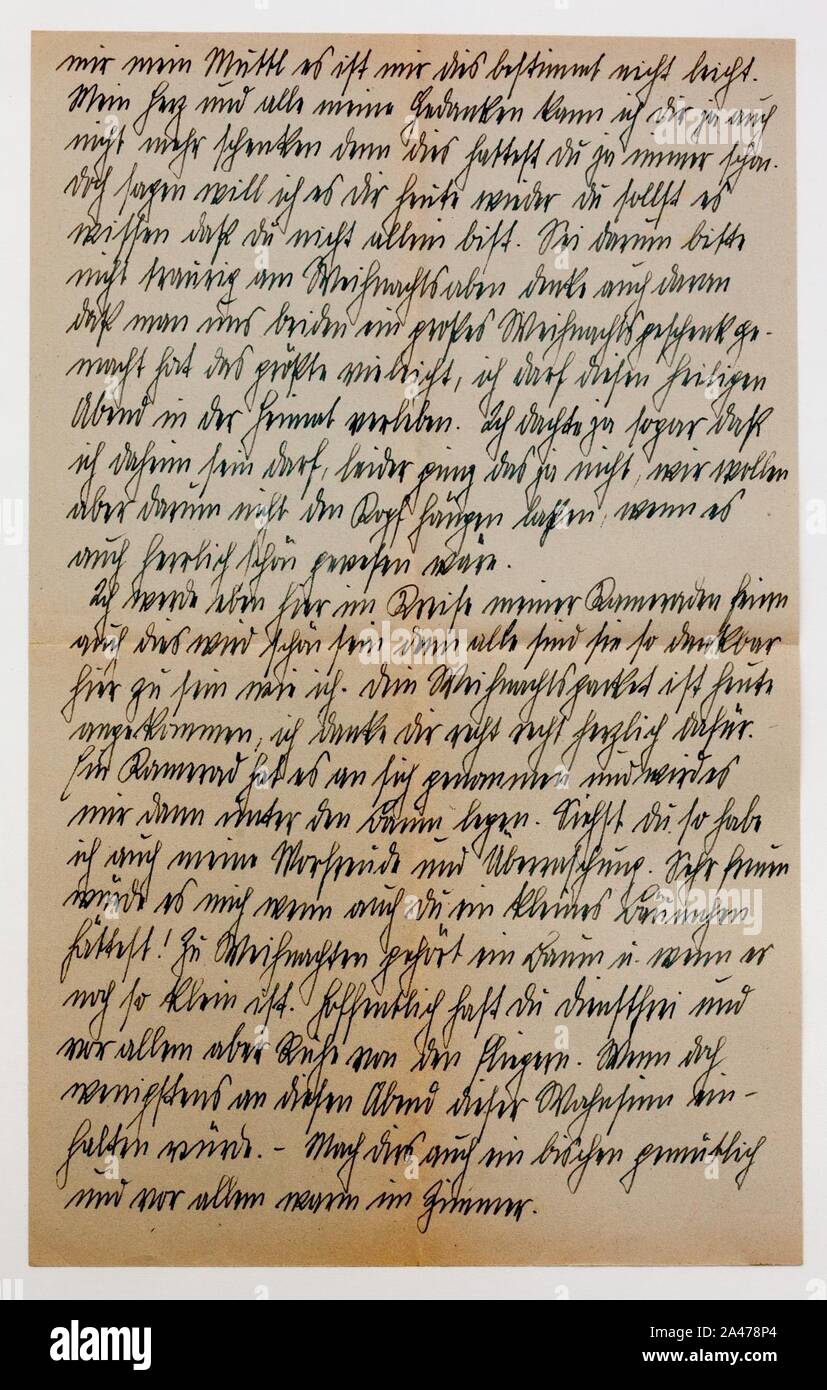 mir mein Muttl es ist mir dies bestimmt nicht leicht.
Mein Herz und alle meine Gedanken kann ich dir ja auch
nicht mehr schenken denn dies hattest du ja immer schon.
Doch sagen will ich es dir heute wieder du sollst es
wissen daß du nicht allein bist. Sei darum bitte
nicht traurig am Weihnachtsaben denke auch daran
daß man uns beiden ein großes Weihnachtsgeschenk ge-
macht hat das größte vieleicht, ich darf diesen heiligen
Abend in der Heimat verleben. Ich dachte ja sogar daß
ich daheim sein darf, leider ging das ja nicht, wir wollen
aber darum nicht den Kopf hängen laßen, wenn es
auch herrlich schön gewesen wäre.
Ich werde eben hier im Kreise meiner Kameraden feiern
auch dies wird schön sein denn alle sind sie so dankbar
hier zu sein wie ich. Dein Weihnachtspacket ist heute
angekommen, ich danke dir recht recht herzlich dafür.
Ein Kamerad hat es an sich genommen und wird es
mir dann unter den Baum legen. Siehst du so habe
ich auch meine Vorfreude und Überraschung. Sehr freuen
würde es mich wenn auch du ein kleines Bäumchen
hättest! Zu Weihnachten gehört ein Baum u. wenn er
noch so klein ist. Hoffentlich hast du dienstfrei und
vor allem aber Ruhe von den Fliegern. Wenn doch
wenigstens an diesen Abend dieser Wahnsinn ein-
halten würde. – Mach dirs auch ein bischen gemütlich
und vor allem warm im Zimmer.
alamy
Image ID: 2A478P4
www.alamy.com